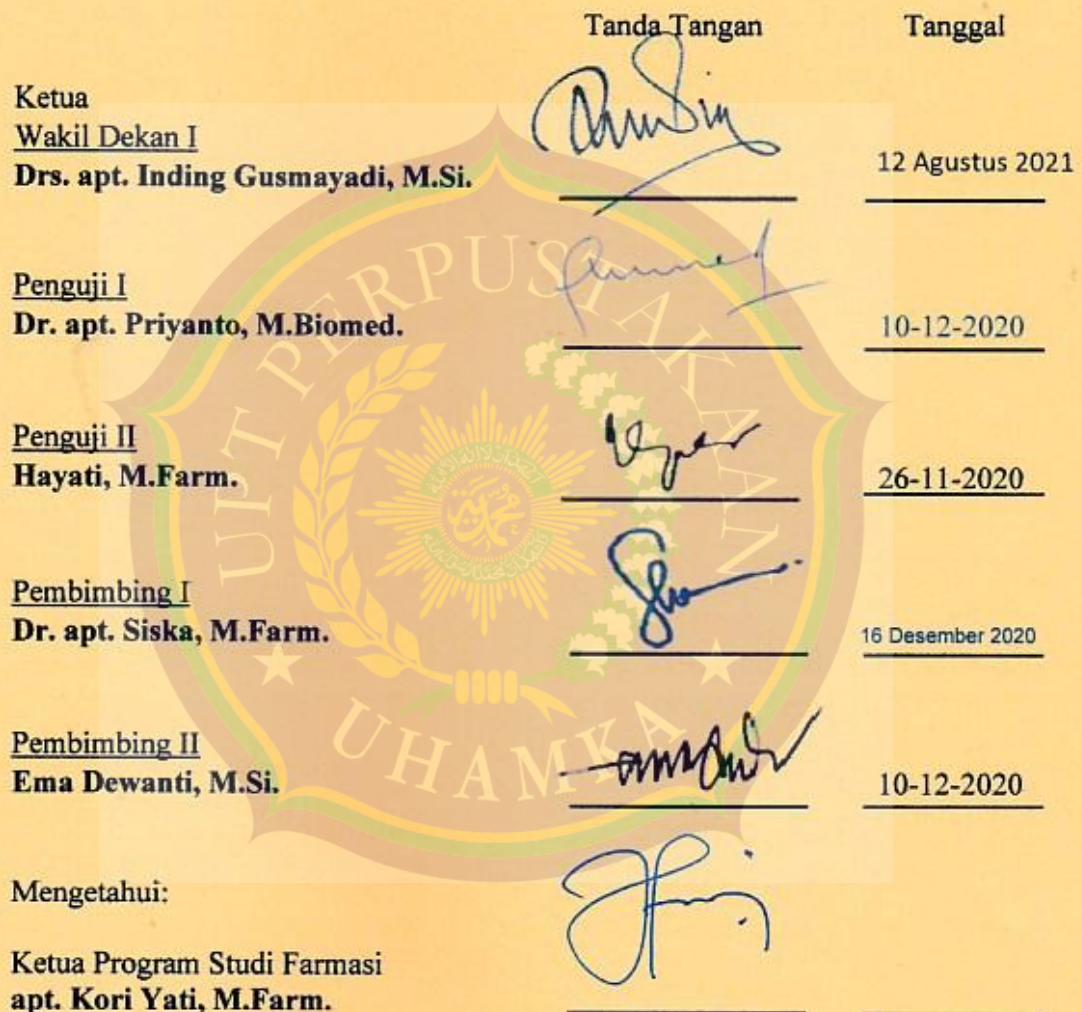 Tanda Tangan Tanggal
Ketua
Wakil Dekan I
Drs. apt. Inding Gusmayadi, M.Si. 12 Agustus 2021
Penguji I
Dr. apt. Priyanto, M.Biomed. 10-12-2020
Penguji II
Hayati, M.Farm. 26-11-2020
Pembimbing I
Dr. apt. Siska, M.Farm. 16 Desember 2020
Pembimbing II
Ema Dewanti, M.Si. 10-12-2020
Mengetahui:
Ketua Program Studi Farmasi
apt. Kori Yati, M.Farm.
UPT PERPUSTAKAAN
UHAMKA